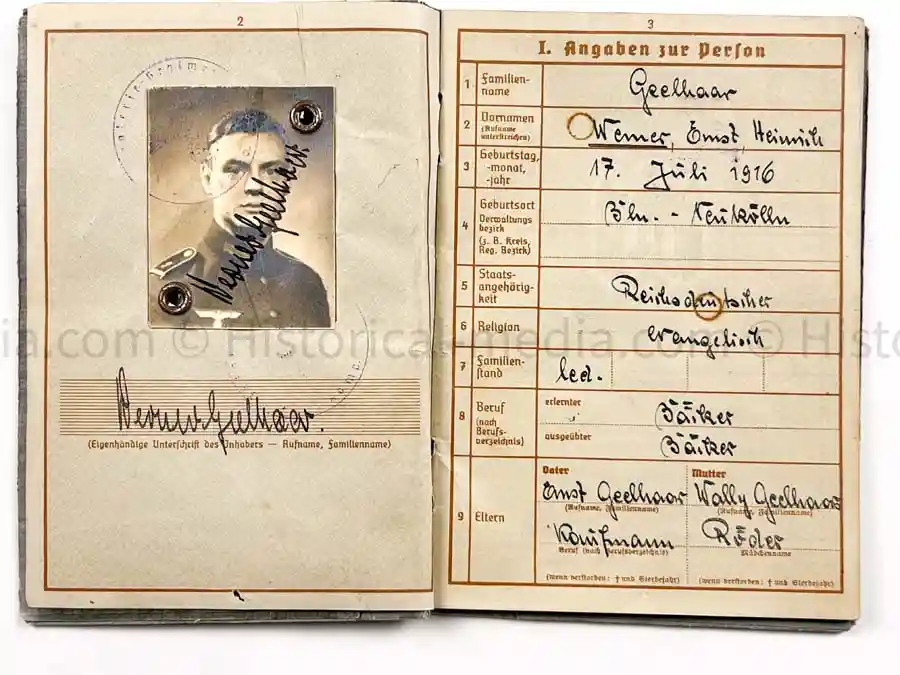 2
Werner Geelhaar
Werner Geelhaar.
(Eigenhändige Unterschrift des Inhabers — Rufname, Familienname)
3
I. Angaben zur Person
1 Familien-
name
Geelhaar
2 Vornamen
(Rufname
unterstreichen)
Werner, Ernst, Heinrich
3 Geburtstag,
-monat,
-jahr
17. Juli 1916
4 Geburtsort
Verwaltungs
bezirk
(z. B. Kreis,
Reg. Bezirk)
Bln. - Neukölln
5 Staats-
angehörig-
keit
Reichsdeutscher
6 Religion
evangelisch
7 Familien-
stand
led.
8 Beruf
(nach
Berufs-
verzeichnis)
erlernter
Bäcker
ausgeübter
Bäcker
9 Eltern
Vater
Ernst Geelhaar
(Rufname, Familienname)
Kaufmann
Beruf (nach Berufsverzeichnis)
(wenn verstorben: † und Sterbejahr)
Mutter
Wally Geelhaar
(Rufname, Familienname)
Röder
Mädchenname
(wenn verstorben: † und Sterbejahr)
ia.com © Historical-media.com © Histor